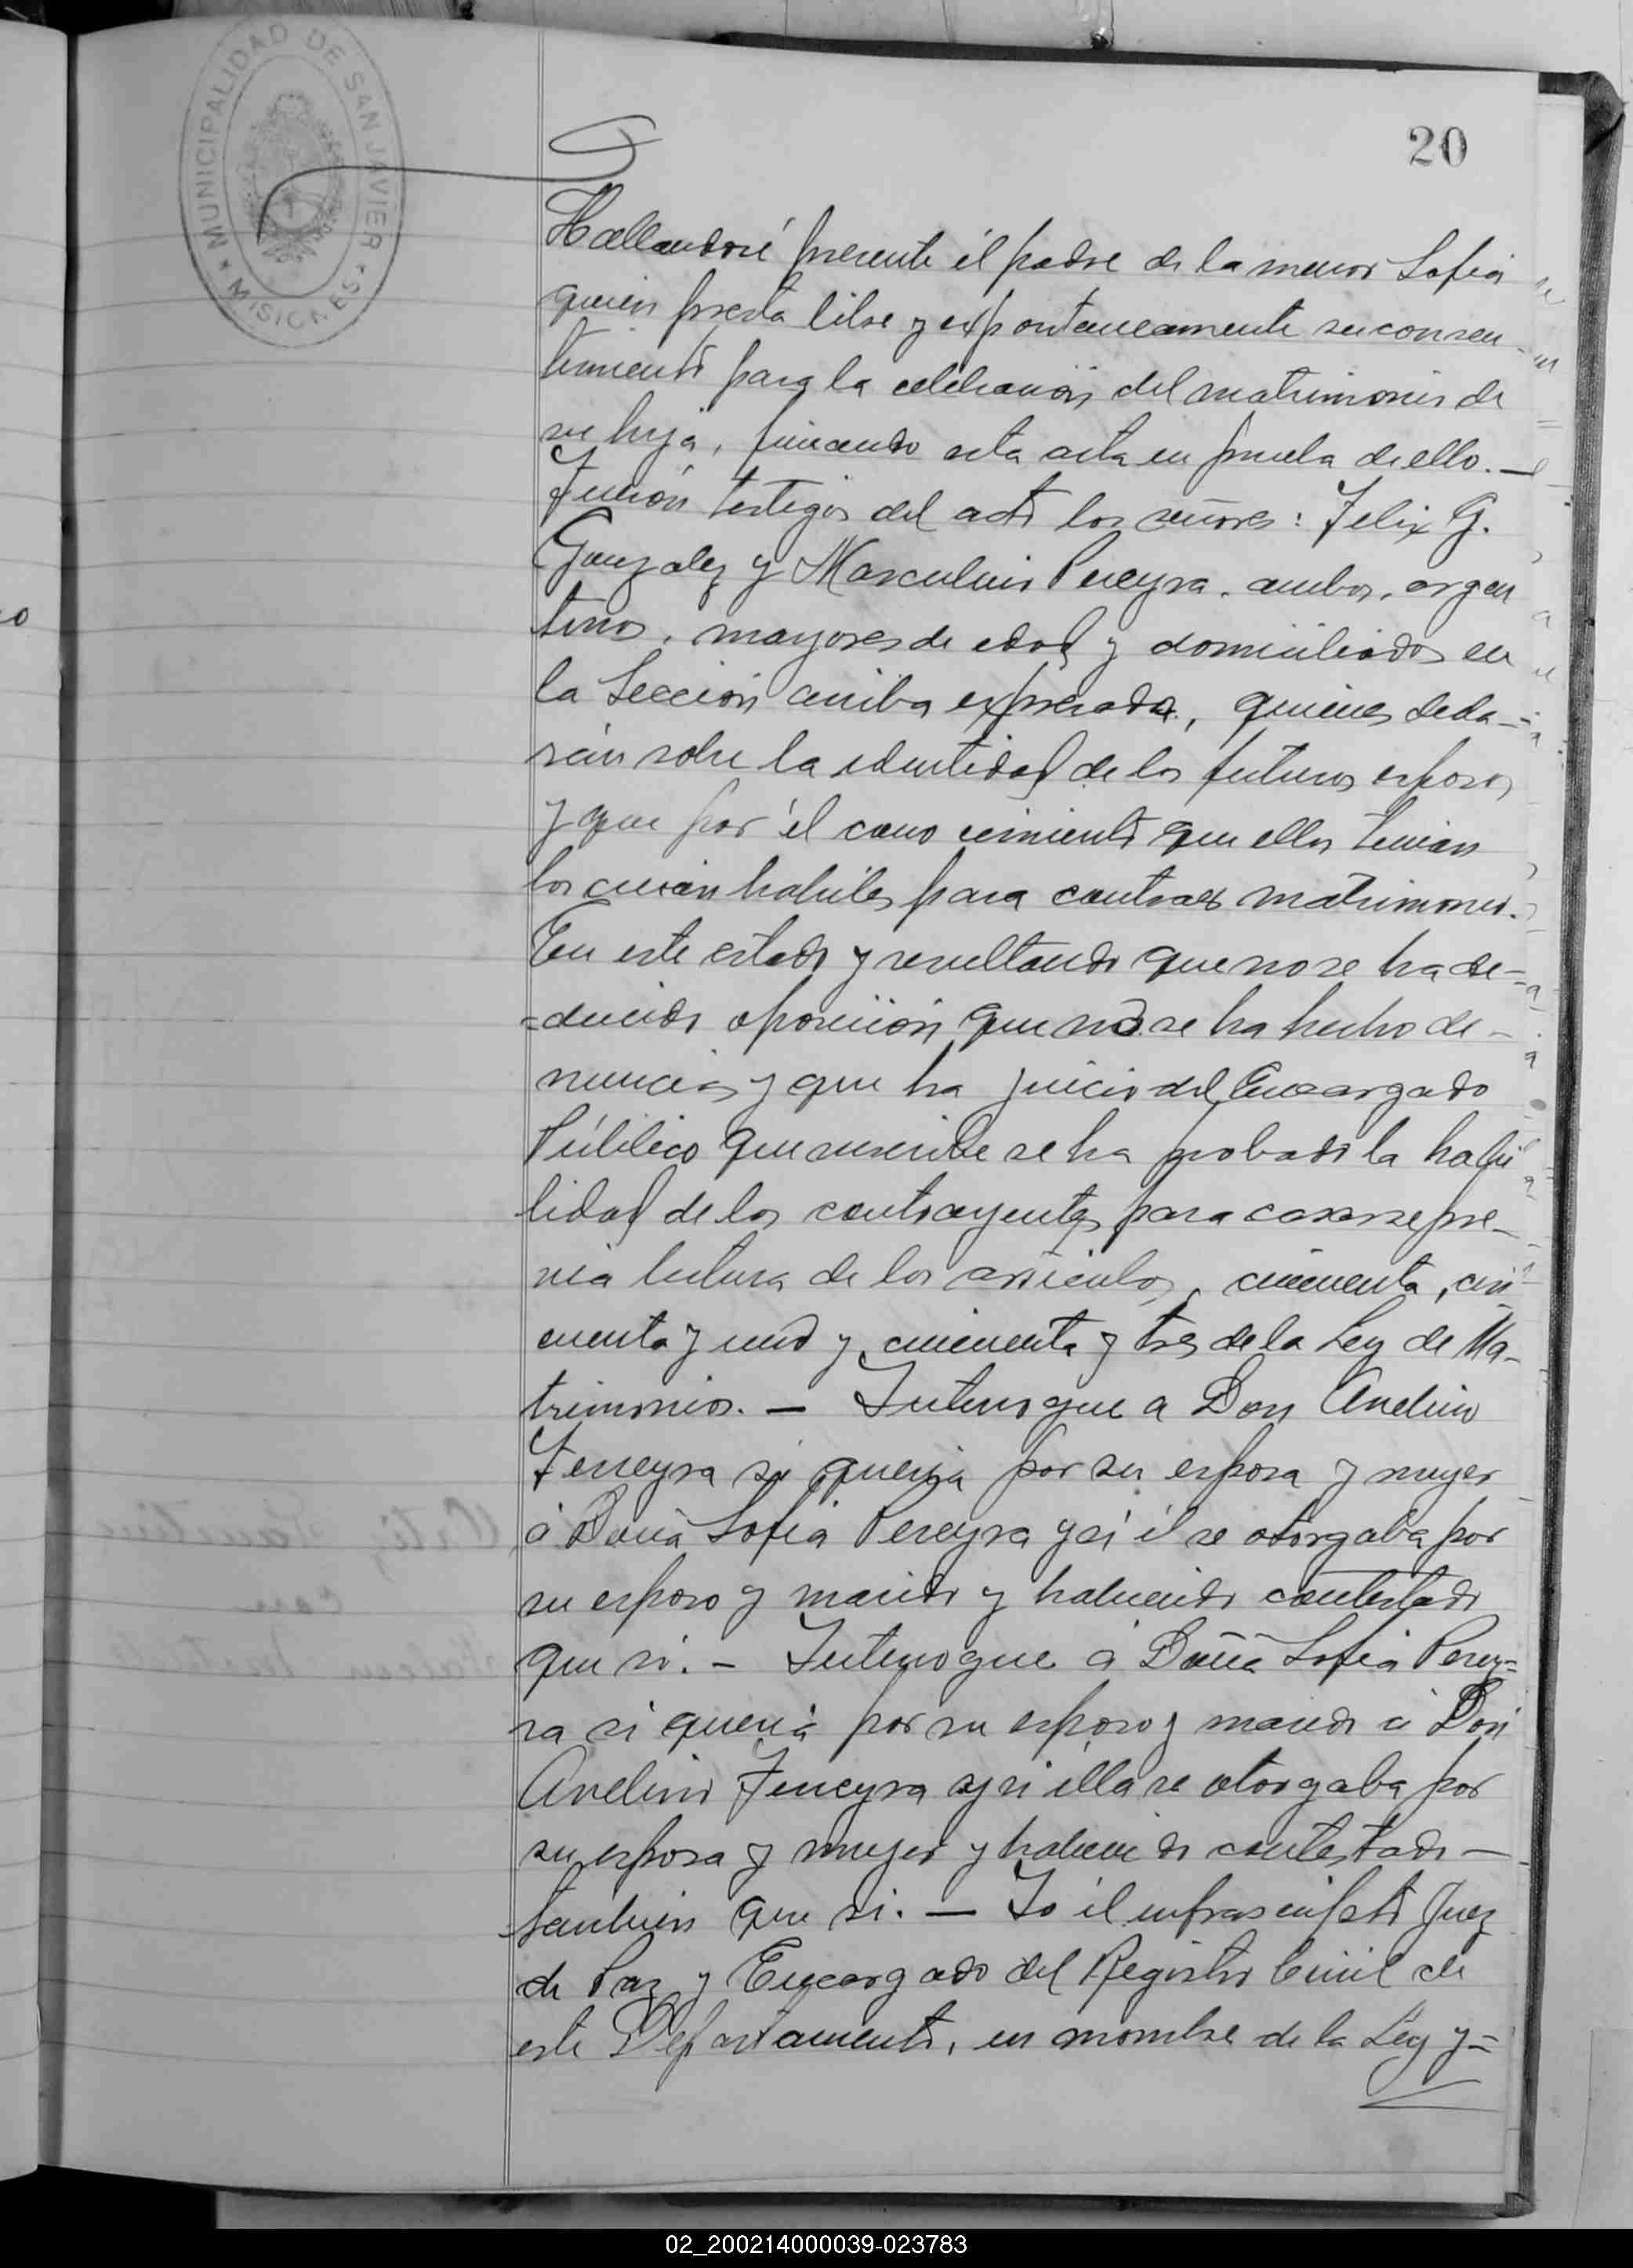 MUNICIPALIDAD DE SAN JAVIER
★ MISIONES ★
20
Hallandosé presente él padre de la menor Sofia
quien presta libre y espontaneamente su consen-
timiento para la celebración del matrimonio de
su hija, firmando esta acta en prueba de ello. —
Fueron testigos del acto los señores: Felix G.
Gonzalez y Marculino Pereyra, ambos, argen
tinos, mayores de edad y domiciliados en
la Sección arriba expresada, quienes decla-
rán sobre la identidad de los futuros esposos
y que por él conocimiento que ellos tenian
los creian habiles para contraer matrimonio.
En este estado y resultando que no se ha de-
=ducido oposición que no se ha hecho de-
nuncia y que ha juicio del Encargado
Público que suscribe se ha probado la habi
lidad de los contrayentes para casarse pre-
via lectura de los articulos, cincuenta, cin
cuenta y uno y cincuenta y tres de la Ley de Ma-
trimonio. — Interrogue a Don Avelino
Ferreyra si queria por su esposa y muger
á Doña Sofia Pereyra y si él se otorgaba por
su esposo y marido y habiendo contestado
que si. — Interrogue á Doña Sofia Perey=
ra si queria por su esposo y marido á Don
Avelino Ferreyra y si élla se otorgaba por
su esposa y muger y habiendo contestado —
tambien que si. — Yo él infrascripto Juez
de Paz y Encargado del Registro Civil de
este Departamento, en nombre de la Ley y=
02_200214000039-023783